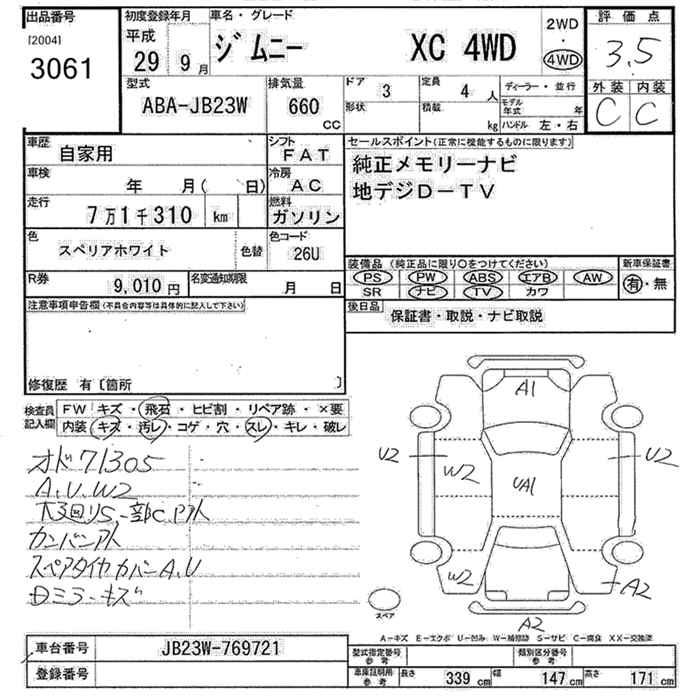 出品番号 初度登録年月 車名・グレード 2WD 評価点
[2004] 平成 ・ 3.5
3061 29 9月 ジムニー XC 4WD 4WD 外装 内装
型式 排気量 ドア 3 定員 4 人 ディーラー・並行 C C
ABA-JB23W 660 cc 形状 積載 kg モデル年式 年
ハンドル 左・右
車歴 自家用 シフト FAT セールスポイント(正常に機能するものに限ります)
車検 年 月( 日) 冷房 AC 純正メモリーナビ
走行 7万1千310 km 燃料 ガソリン 地デジD-TV
色 スペリアホワイト 色替 色コード 26U
装備品(純正品に限り○をつけてください) 新車保証書
R券 9,010円 名変通知期限 月 日 PS PW ABS エアB AW 有・無
SR ナビ TV カワ
注意事項申告欄(不具合内容等は具体的に記入して下さい) 後日品 保証書・取説・ナビ取説
修復歴 有〔箇所 〕
検査員記入欄 FW キズ・飛石・ヒビ割・リペア跡・×要
内装 キズ・汚レ・コゲ・穴・スレ・キレ・破レ
オド71305
A.U.W2
下廻りS.一部C.Pアト
カンバンアト
スペアタイヤカバーA.U
Dミラーキズ
A1
U2 W2 UA1 U2
W2 A2
スペア
A2
A-キズ E-エクボ U-凹み W-補修跡 S-サビ C-腐食 XX-交換歴
車台番号 JB23W-769721 型式指定番号 参考 類別区分番号 参考
登録番号 車庫証明用 参考 長さ 339 cm 幅 147 cm 高さ 171 cm